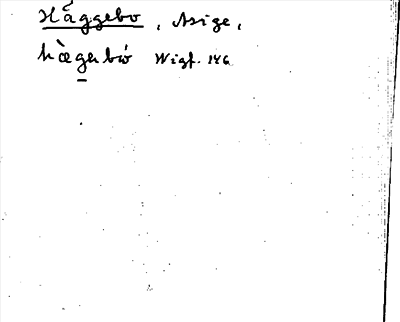 Häggebo, Asige,
hæ̀gabó Wigf. 146